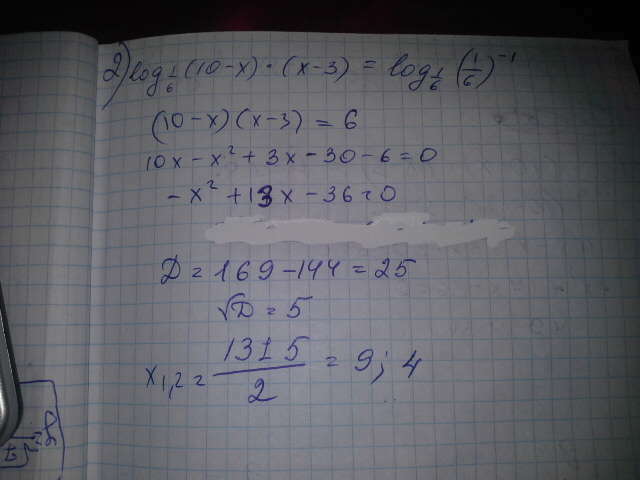 2) log_{1/6} (10-x) · (x-3) = log_{1/6} (1/6)^{-1}
(10-x)(x-3) = 6
10x - x² + 3x - 30 - 6 = 0
- x² + 13x - 36 = 0
D = 169 - 144 = 25
√D = 5
x_{1,2} = (13 ± 5)/2 = 9; 4